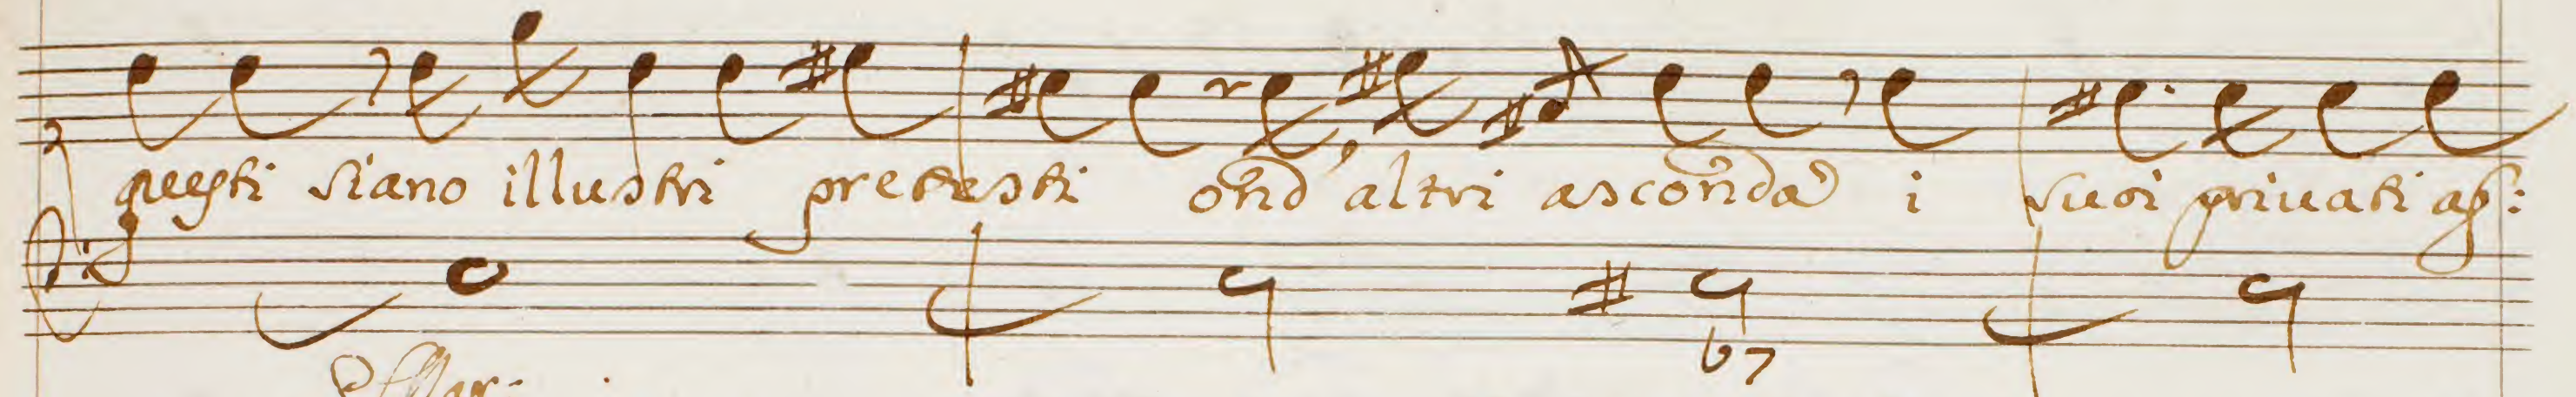 questi siano illustri pretesti ond' altri asconda i suoi priuati af:
b7